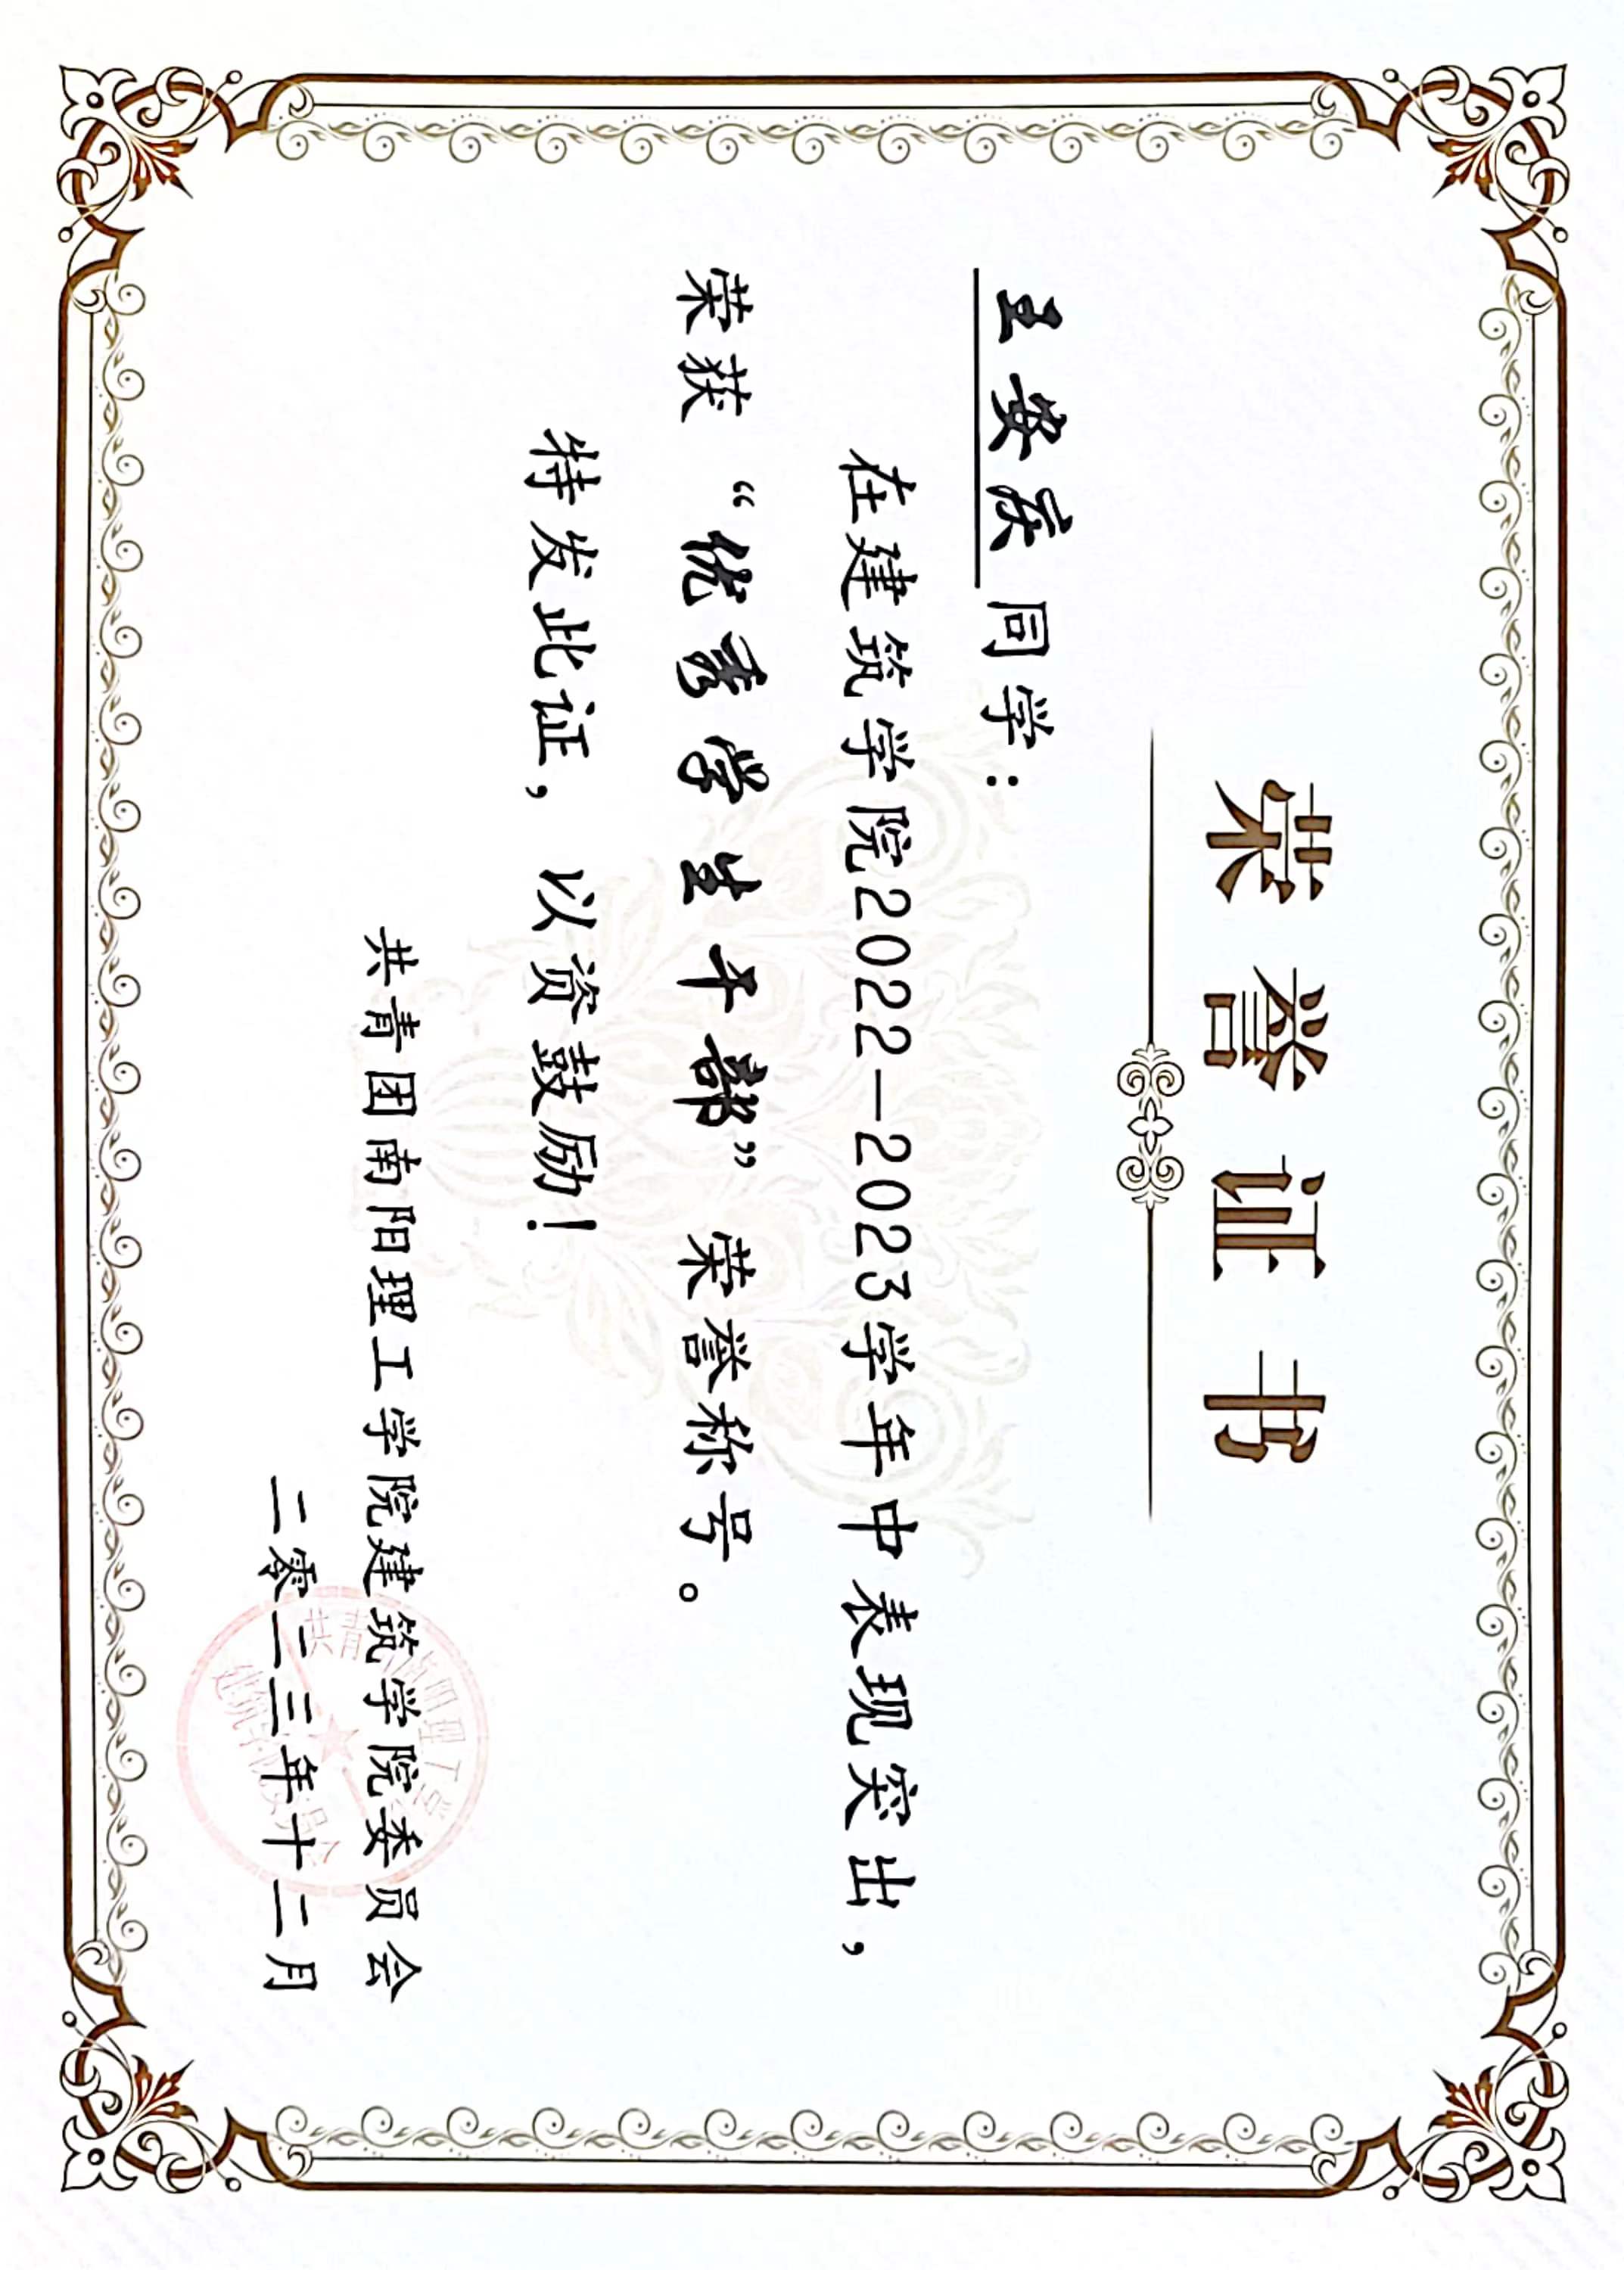 荣誉证书
王安庆同学：
在建筑学院2022—2023学年中表现突出，
荣获“优秀学生干部”荣誉称号。
特发此证，以资鼓励！
共青团南阳理工学院建筑学院委员会
二零二三年十二月